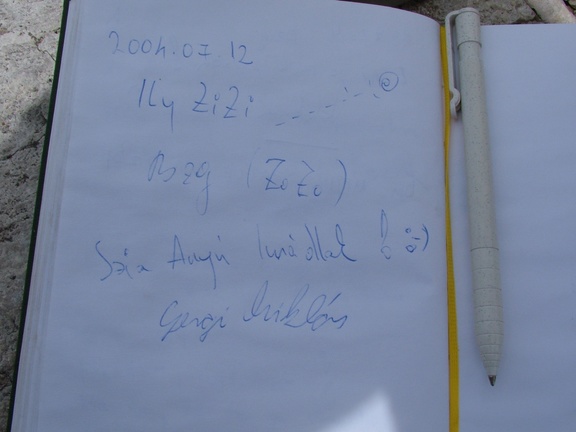 2004.07.12
Ily ZiZi
Bzg (ZoZo)
Szia Anyu imádlak! :)
Gergi Miklós